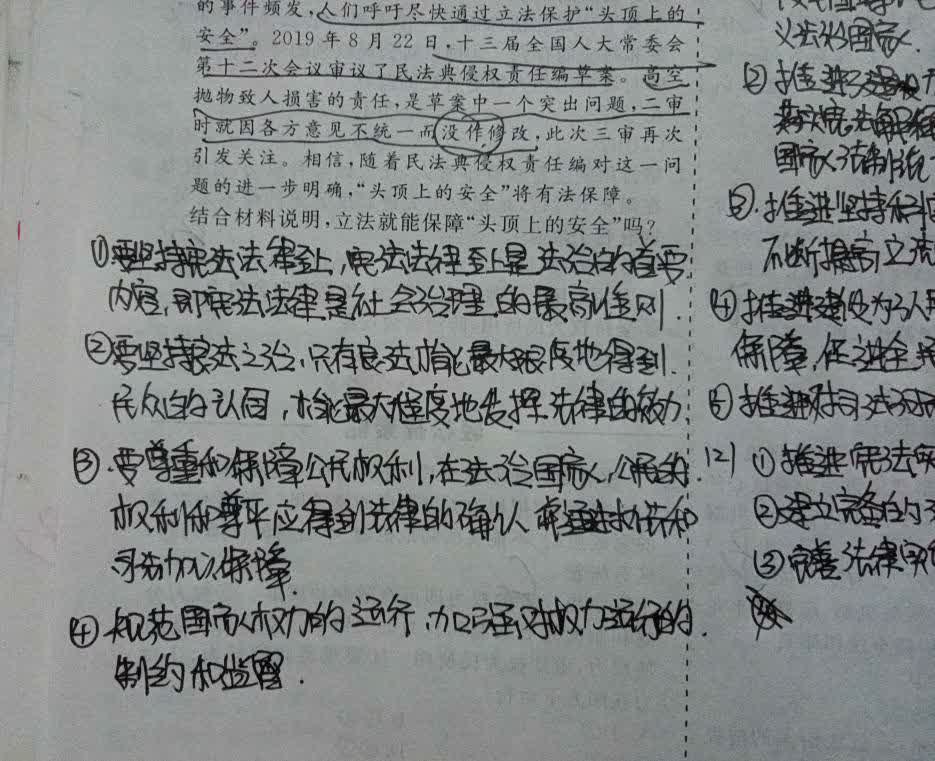 的事件频发，人们呼吁尽快通过立法保护“头顶上的
安全”。2019年8月22日，十三届全国人大常委会
第十二次会议审议了民法典侵权责任编草案。高空
抛物致人损害的责任，是草案中一个突出问题，二审
时就因各方意见不统一而没作修改，此次三审再次
引发关注。相信，随着民法典侵权责任编对这一问
题的进一步明确，“头顶上的安全”将有法保障。
结合材料说明，立法就能保障“头顶上的安全”吗？
①要坚持宪法法律至上，宪法法律至上是法治的首要
内容，即宪法法律是社会治理的最高准则.
②要坚持良法之治，只有良法才能最大限度地得到
民众的认同，才能最大程度地发挥法律的效力
③.要尊重和保障公民权利，在法治国家，公民的
权利和尊严应得到法律的确认并通过执法和
司法加以保障.
④规范国家权力的运行，加强对权力运行的
制约和监督.
义法治国家.
②推进
国家法制统
③.推进坚持科
不断提高立法
④推进建设为了人民
保障，促进全
⑤推进
(2) ①推进宪法
②建立完备的
③完善法律